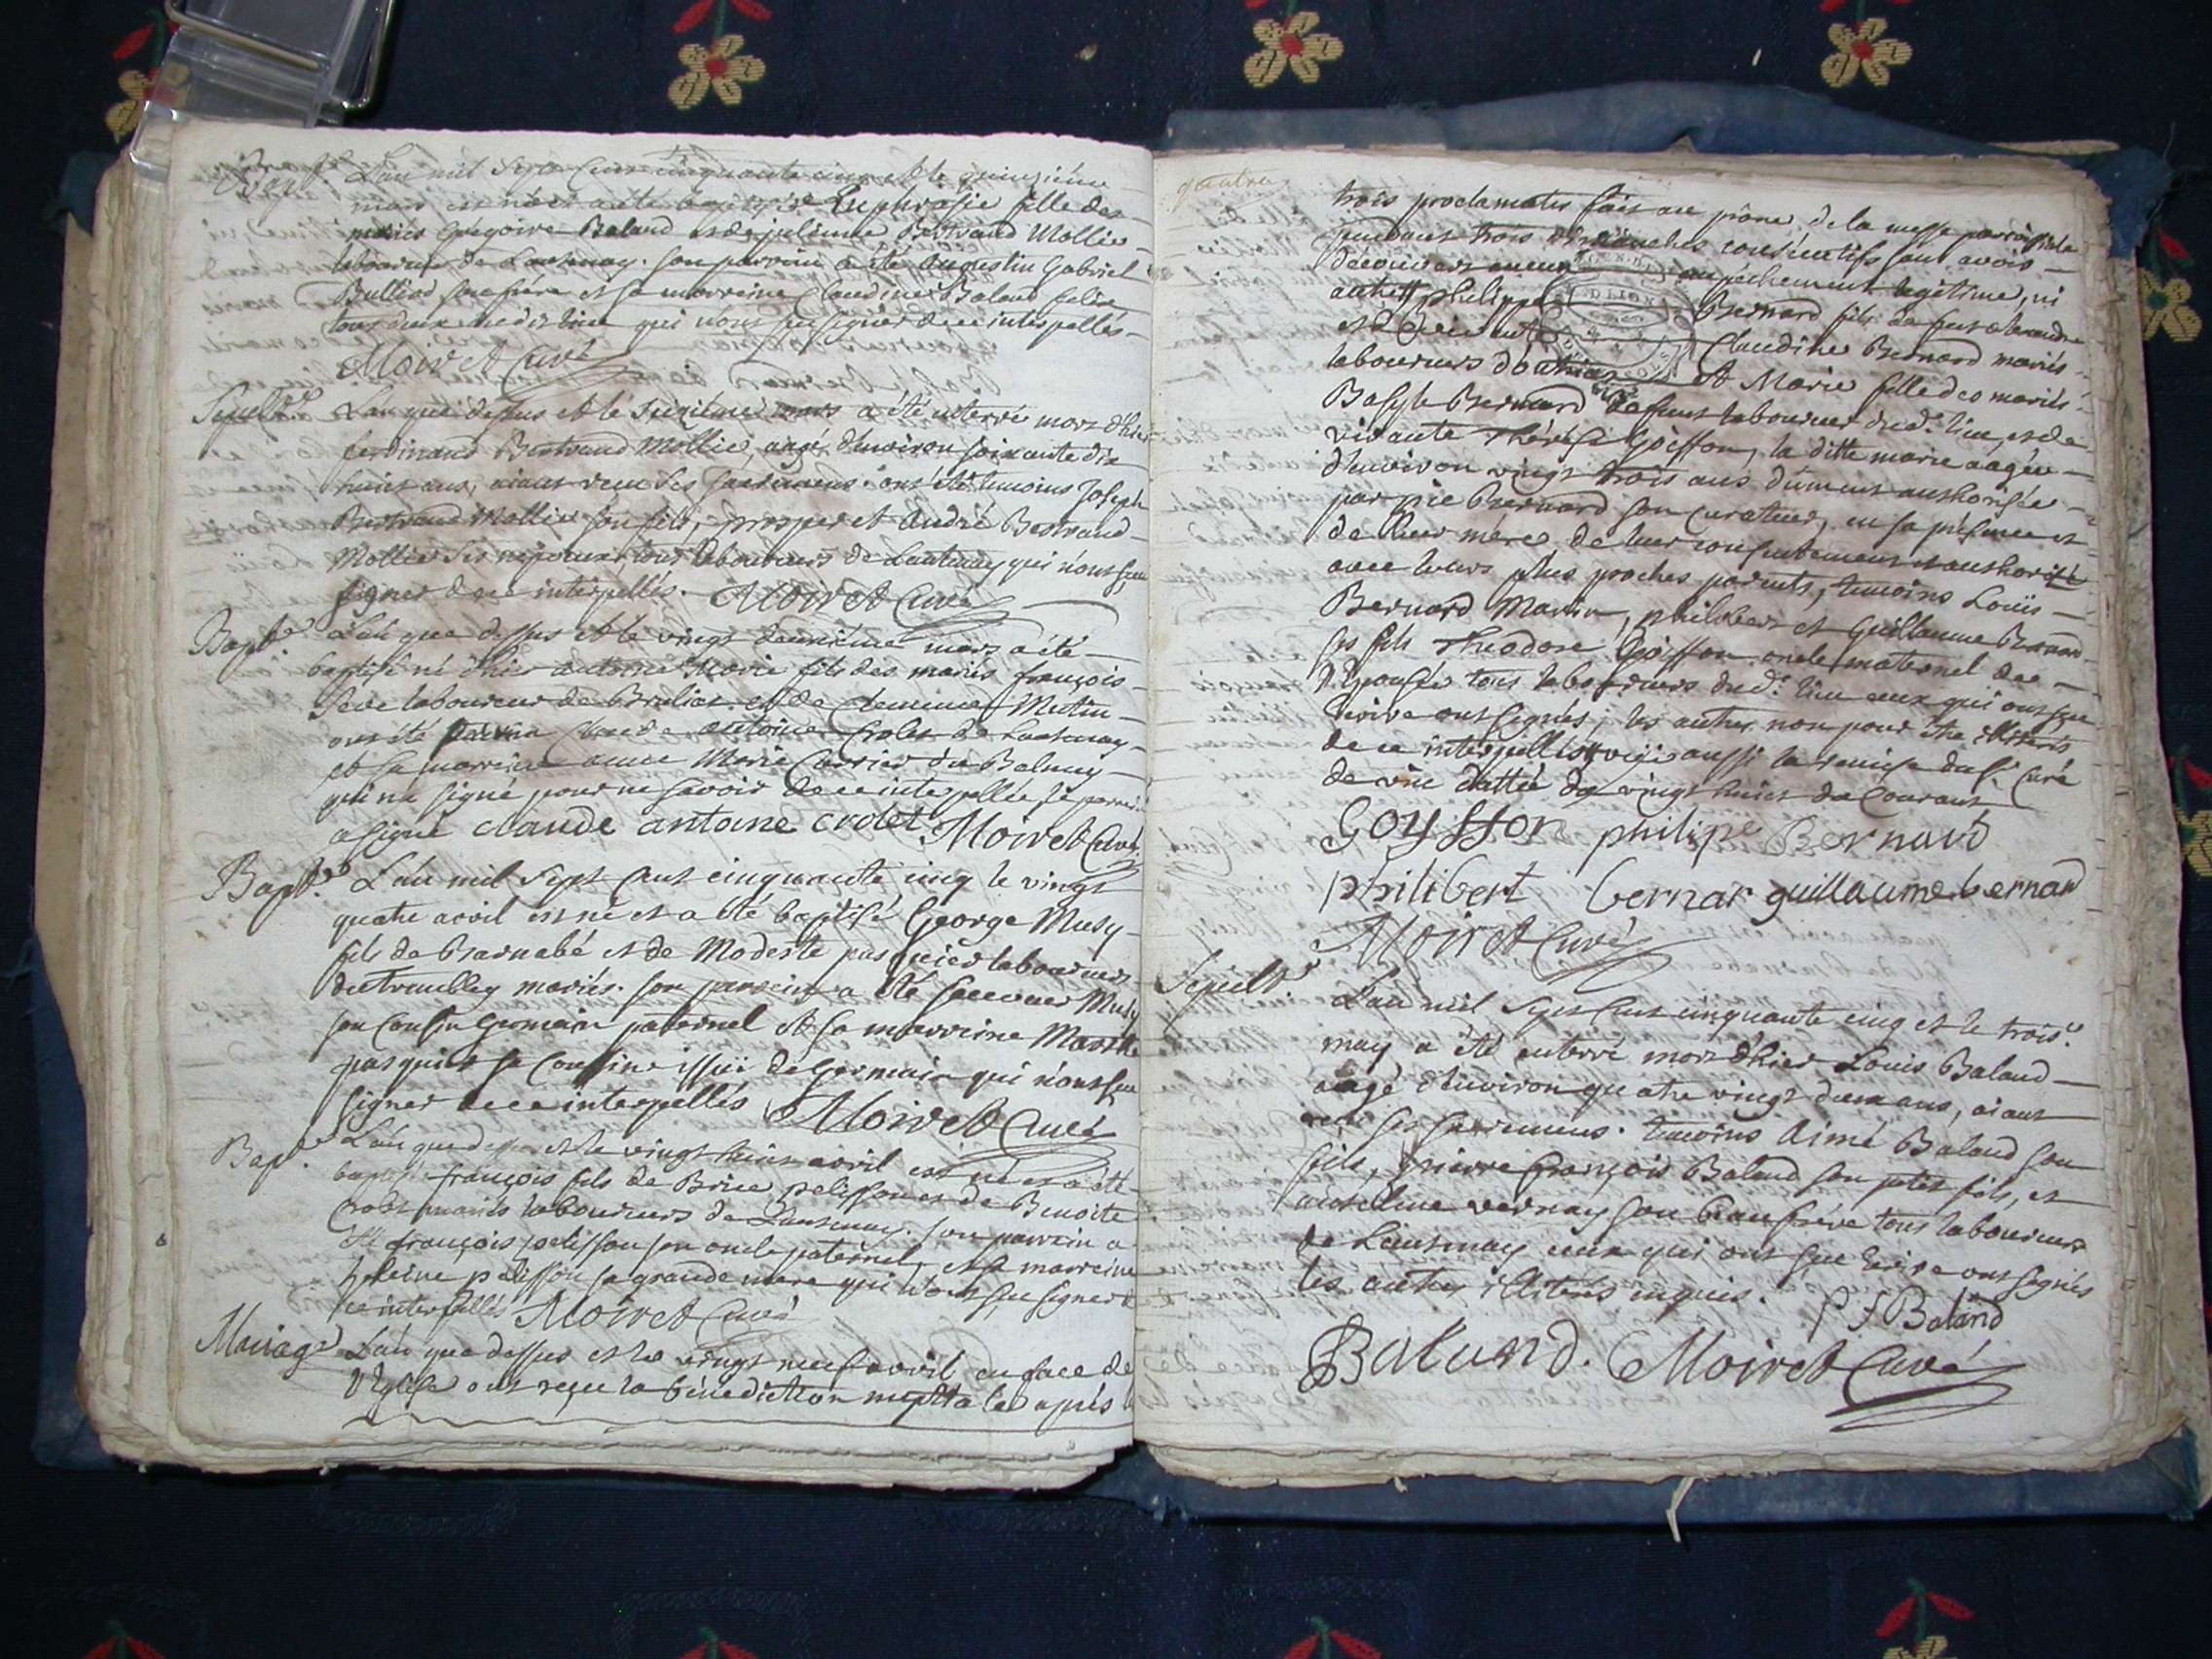 Bapt.e L'an mil sept cent cinquante cinq et le quinzième
mars est née et a été baptisée Euphrasie fille des
mariés Grégoire Baland et de julienne Bertrand Mollie
laboureur de Lantenay. son parrain a été augustin Gabriel
et sa marreine Claudine Baland
tous deux dudit lieu qui n'ont sçu signer de ce interpellés
Moiret Curé
Sepult.e L'an que dessus et le seizième mars a été enterré mort d'hier
ferdinand Bertrand Mollie, aagé d'environ soixante dix
huict ans, aiant receu ses sacremens. ont été temoins Joseph
Bertrand Mollie son fils, prosper et André Bertrand
Mollie ses nepveux tous laboureurs de Lantenay qui n'ont sçeu
signer de ce interpellés. Moiret Curé
Bapt.e L'an que dessus et le vingt deuxième mars a été
baptisé né d'hier antoine Marie fils des mariés françois
Seve laboureur de et de Clemence Mutin
ont été parrain Claude antoine Crolet de Lantenay
et sa marreine anne Marie Carrier du Balmay
qui n'a signé pour ne savoir de ce interpellée le parrain
a signé claude antoine crolet Moiret Curé
Bapt.e L'an mil sept cent cinquante cinq le vingt
quatre avril est né et a été baptisé George Musy
fils de Barnabé et de Modeste pasquier laboureurs
mariés. son parrein a été Musy
son Cousin Germain paternel et sa marreine Marthe
pasquier sa Cousine issüe de Germain qui n'ont sçeu
signer de ce interpellés Moiret Curé
Bapt.e L'an que dessus et le vingt huict avril est né et a été
baptisé françois fils de Brice pelisson et de Benoite
Crolet mariés laboureurs de Lantenay. son parrein a
été françois pelisson son oncle paternel, et sa marreine
pelisson sa grande mere qui n'ont sçu signer de
ce interpellés Moiret Curé
Mariage L'an que dessus et le vingt neuf avril en face de
l'Eglise ont reçu la bénédiction nuptiale après
quatre
trois proclamates fais au prône de la messe parroissiale
pendant trois dimanches consécutifs sans avoir
découvert aucun empechement legitime, ni
autre philippe Bernard fils de feus
et de vivante Claudine Bernard mariés
laboureurs et Marie fille des mariés
Basyle Bernard defunt laboureur dud.t lieu, et de
vivante Thérèse Goiffon, la ditte marie aagée
d'environ vingt trois ans dûment authorisée
par Bernard son curateur, en sa présence et
de leur mère de leur consentement et authorité
avec leurs plus proches parents, temoins Louis
Bernard Martin, philibert et Guillaume Bernard
ses fils Theodore Goiffon oncle maternel de
l'Epousée tous laboureurs dud.t lieu ceux qui ont sçu
écrire ont signés, les autres non pour être illiterés
de ce interpellés, vû aussi la remise du S.r Curé
de dattée du vingt huict du Courant
Goysson philipe Bernard
philibert bernar guillaume bernard
Moiret Curé
Sepult.e L'an mil sept cent cinquante cinq et le trois.e
may a été enterré mort d'hier Louis Baland
aagé d'environ quatre vingt deux ans, aiant
receu ses sacremens. temoins Aimé Baland son
fils, pierre françois Baland son petit fils, et
anthelme vernay son beau frère tous laboureurs
de Lantenay ceux qui ont sçu écrire ont signés
les autres illiterés enquis. P f Baland
Baland. Moiret Curé